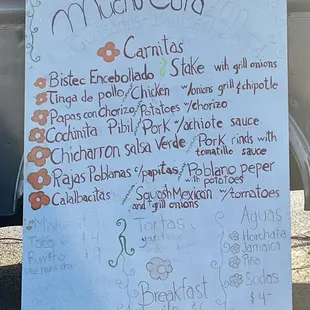 Mucho
Carnitas
Bistec Encebollado / Stake with grill onions
Tinga de pollo / Chicken w/onions grill & chipotle
Papas con Chorizo / Potatoes w/chorizo
Cochinita Pibil / Pork w/achiote sauce
Chicharron salsa Verde / Pork rinds with
tomatillo sauce
Rajas Poblanas c/papitas / Poblano peper
with potatoes
Calabacitas / Squash Mexican w/tomatoes
and grill onions
Make it
Tortas
Aguas
Horchata
Jamaica
Piña
Sodas
$4
Breakfast